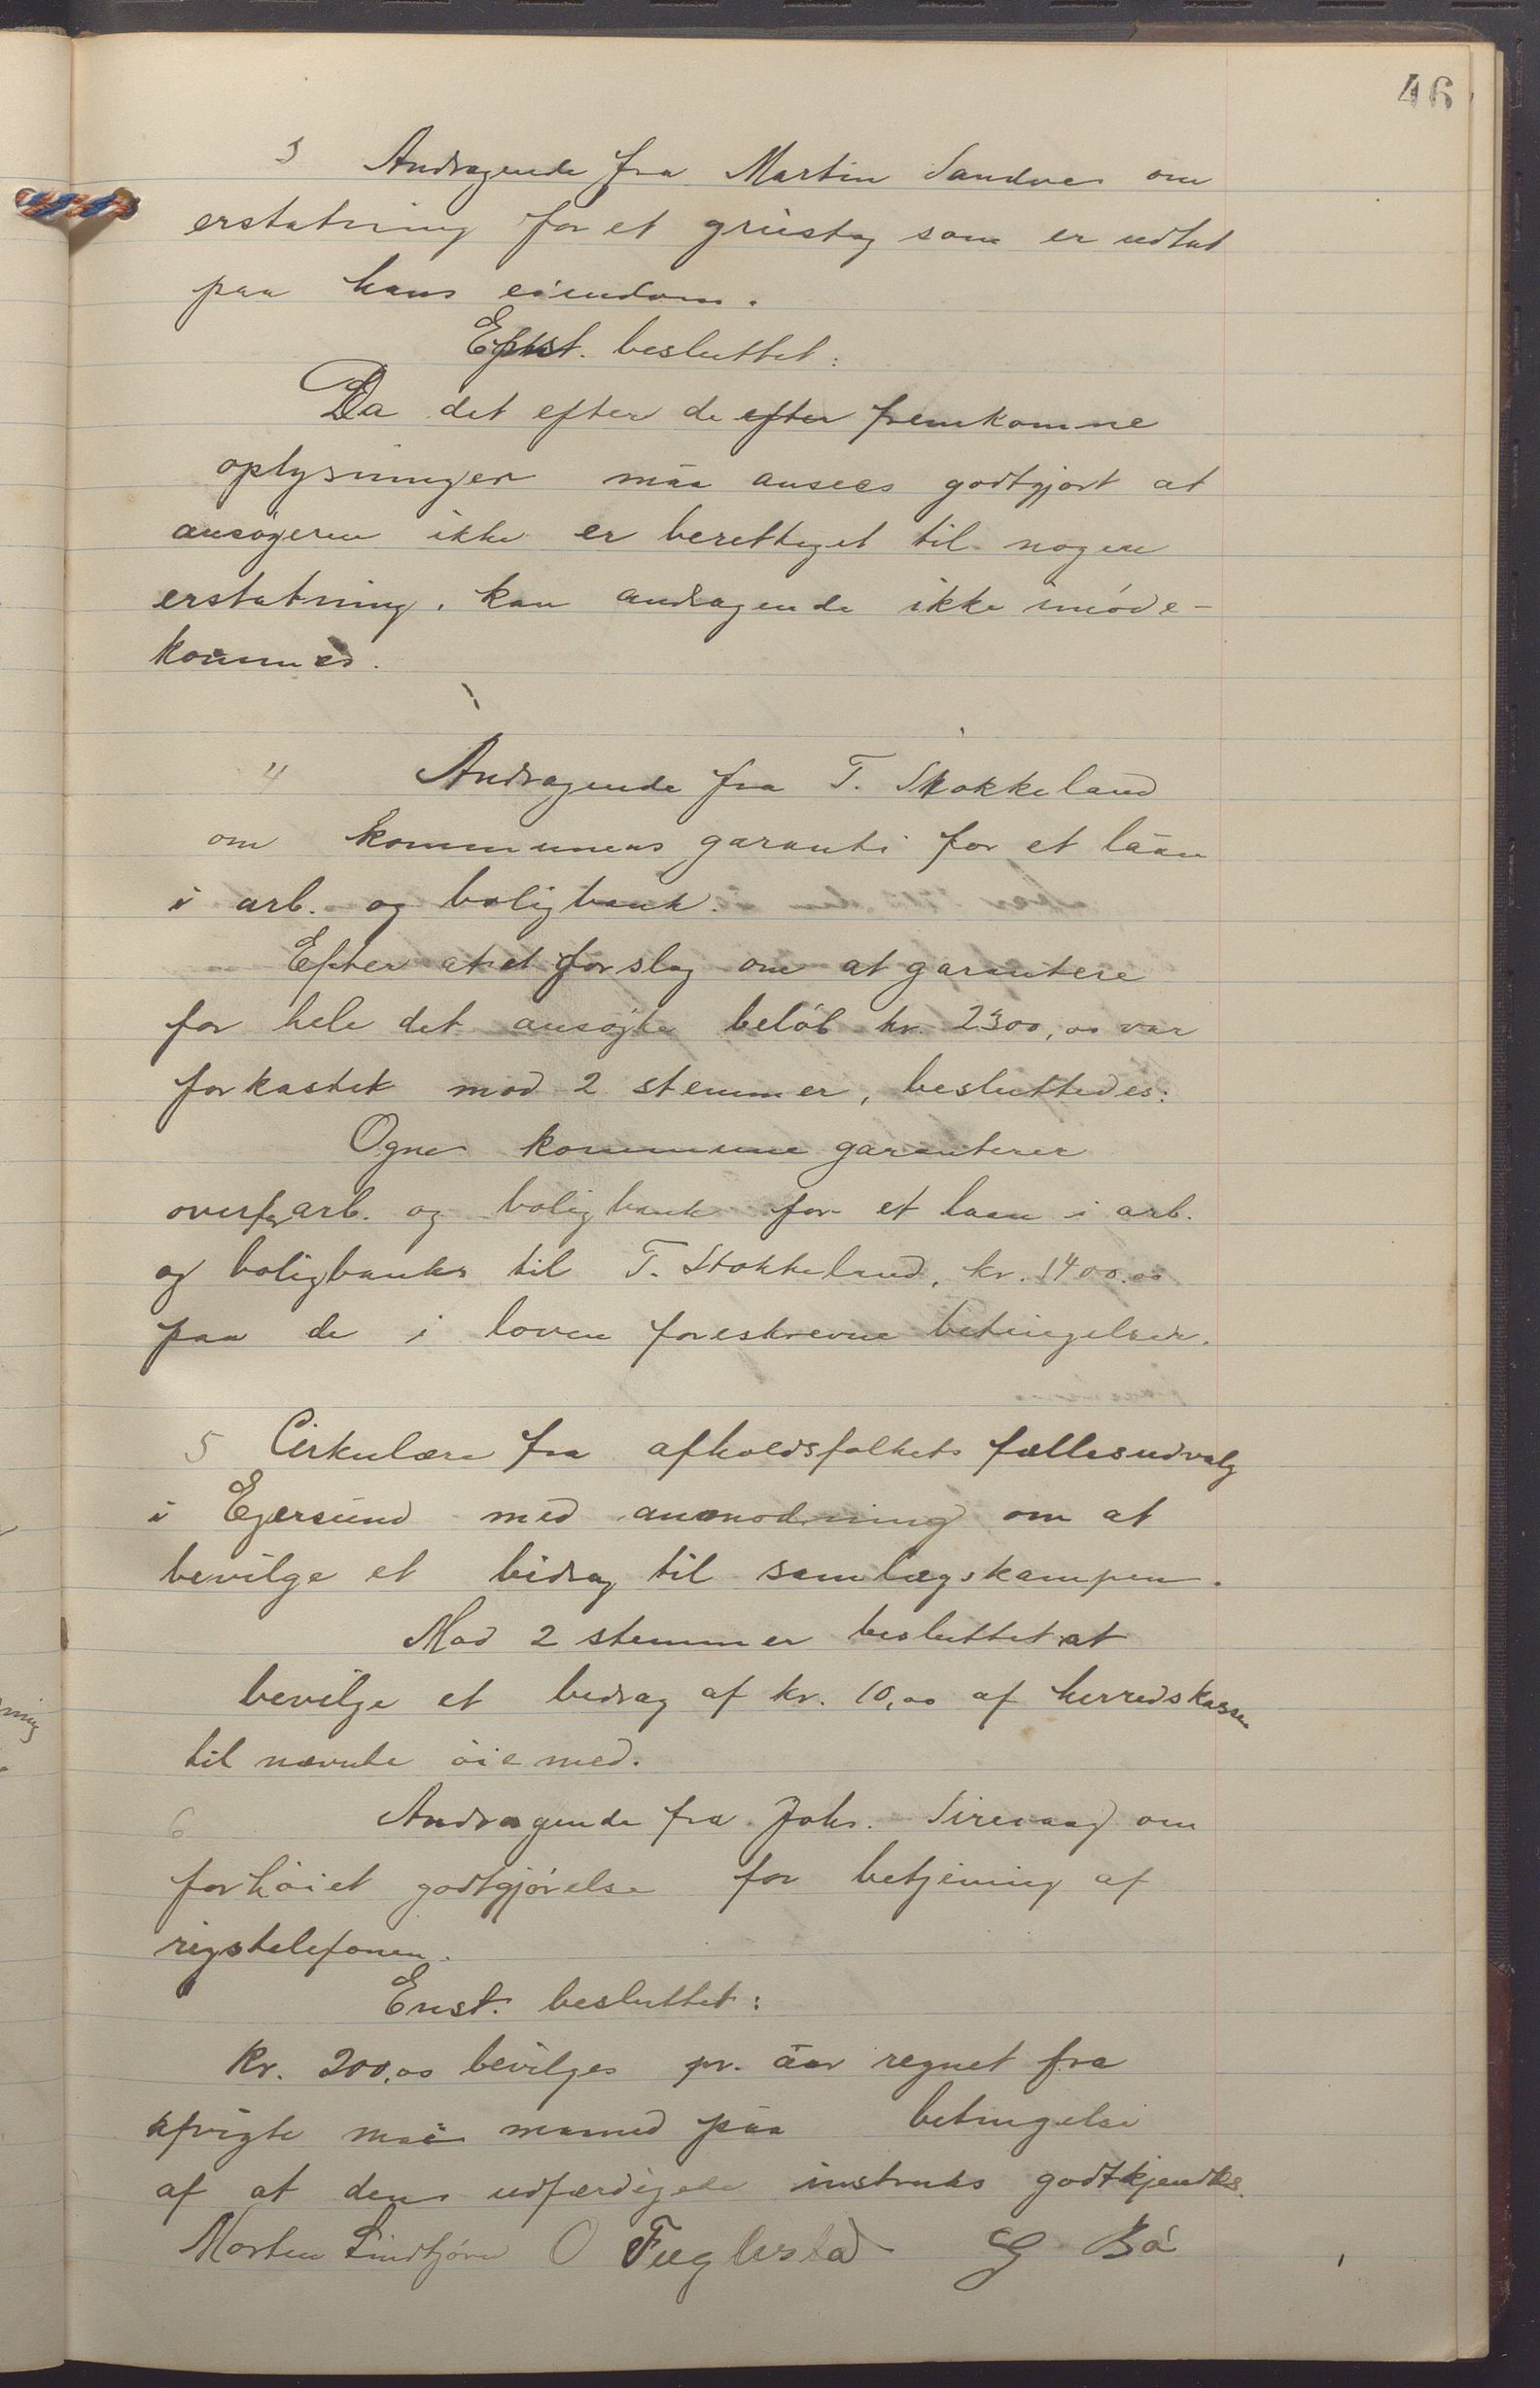 46
3 Andragende fra Martin Sandve om
erstatning for et grústag som er udtat
paa hans eiendom.
Enst. besluttet:
Da det efter de efter fremkomne
oplysninger máa ansees godtgjort at
ansøgeren ikke er berettiget til nogen
erstatning, kan andragende ikke imøde-
kommes.
4 Andragende fra T. Stokkeland
om kommunens garanti for et láan
i arb. og boligbank.
Efter at et forslag om at garantere
for hele det ansøgte beløb kr. 2300,00 var
forkastet mod 2 stemmer, besluttedes:
Ogne kommune garanterer
overfor arb. og boligbank for et laan i arb.
og boligbanks til T. Stokkeland, kr. 1400.00
paa de i loven foreskrevne betingelser.
5 Cirkulære fra afholdsfolkets fællesudvalg
i Egersund med anmodning om at
bevilge et bidrag til samlagskampen.
Mod 2 stemmer besluttet at
bevilge et bidrag af kr. 10,00 af herredskassen
til nævnte øiemed.
6 Andragende fra Johs. Sirevaag om
forhøiet godtgjørelse for betjening af
rigstelefonen.
Enst. besluttet:
Kr. 200,00 bevilges pr. áar regnet fra
afvigte mai maaned páa betingelse
af at den udfærdigede instruks godtkjendtes.
Morten Lindtjørn O Fuglestad G Bø